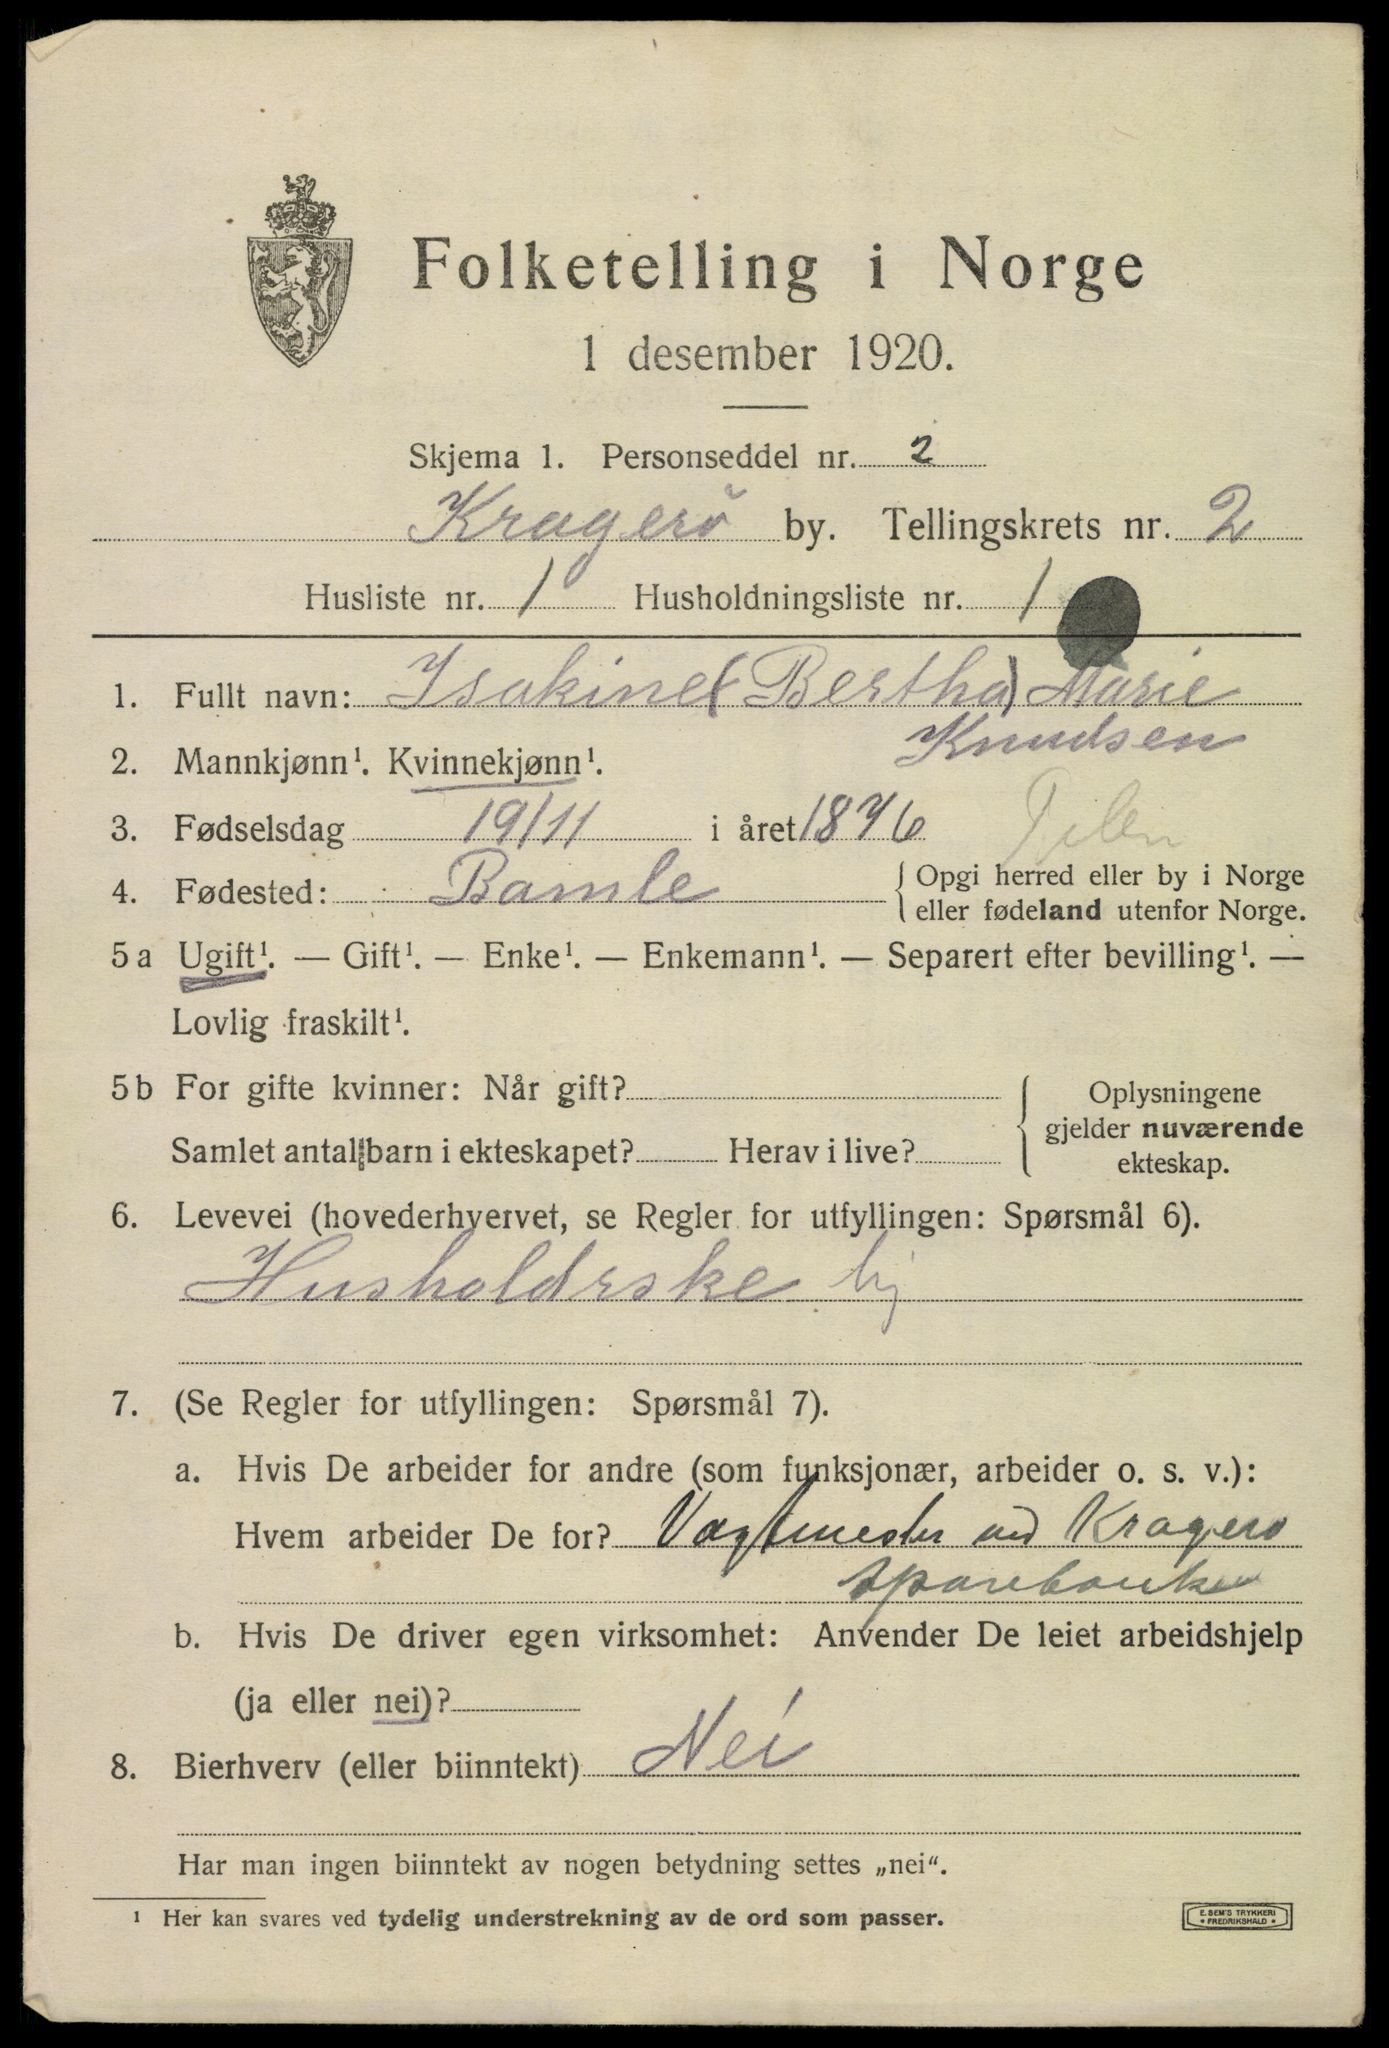 Folketelling i Norge
1 desember 1920.
Skjema 1. Personseddel nr. 2
Kragerö by. Tellingskrets nr. 2
Husliste nr. 1 Husholdningsliste nr. 1
1. Fullt navn: Isakine (Bertha) Marie
Knudsen
2. Mannkjønn¹. Kvinnekjønn¹.
3. Fødselsdag 19/11 i året 1876
4. Fødested: Bamle { Opgi herred eller by i Norge
eller fødeland utenfor Norge.
5a Ugift¹. — Gift¹. — Enke¹. — Enkemann¹. — Separert efter bevilling¹. —
Lovlig fraskilt¹.
5b For gifte kvinner: Når gift? { Oplysningene
gjelder nuværende
ekteskap.
Samlet antal barn i ekteskapet? Herav i live?
6. Levevei (hovederhvervet, se Regler for utfyllingen: Spørsmål 6).
Husholdrske
7. (Se Regler for utfyllingen: Spørsmål 7).
a. Hvis De arbeider for andre (som funksjonær, arbeider o. s. v.):
Hvem arbeider De for? Vagtmester ved Kragerø
Sparebanken
b. Hvis De driver egen virksomhet: Anvender De leiet arbeidshjelp
(ja eller nei)?
8. Bierhverv (eller biinntekt) Nei
Har man ingen biinntekt av nogen betydning settes „nei“.
¹ Her kan svares ved tydelig understrekning av de ord som passer.
E. SEM'S TRYKKERI
• FREDRIKSHALD •